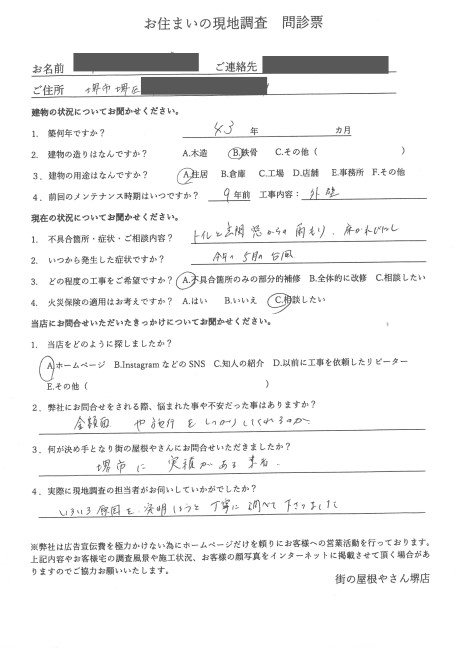 お住まいの現地調査 問診票
お名前 ご連絡先
ご住所 堺市堺区
建物の状況についてお聞かせください。
1. 築何年ですか? 43 年 カ月
2. 建物の造りはなんですか? A.木造 B.鉄骨 C.その他( )
3. 建物の用途はなんですか? A.住居 B.倉庫 C.工場 D.店舗 E.事務所 F.その他
4. 前回のメンテナンス時期はいつですか? 9年前 工事内容: 外壁
現在の状況についてお聞かせください。
1. 不具合箇所・症状・ご相談内容? トイレと玄関 窓からの雨もり、
2. いつから発生した症状ですか? 今年の5月の台風
3. どの程度の工事をご希望ですか? A.不具合箇所のみの部分的補修 B.全体的に改修 C.相談したい
4. 火災保険の適用はお考えですか? A.はい B.いいえ C.相談したい
当店にお問合せいただいたきっかけについてお聞かせください。
1. 当店をどのように探しましたか?
A.ホームページ B.InstagramなどのSNS C.知人の紹介 D.以前に工事を依頼したリピーター
E.その他( )
2. 弊社にお問合せをされる際、悩まれた事や不安だった事はありますか?
金額面 や施行をしっかりしてくれるのか
3. 何が決め手となり街の屋根やさんにお問合せいただきましたか?
堺市に 実績がある 業者
4. 実際に現地調査の担当者がお伺いしていかがでしたか?
いろいろ原因を究明しようと 丁寧に調べて下さいました
※弊社は広告宣伝費を極力かけない為にホームページだけを頼りにお客様への営業活動を行っております。
上記内容やお客様宅の調査風景や施工状況、お客様の顔写真をインターネットに掲載させて頂く場合があ
りますのでご協力お願いいたします。
街の屋根やさん堺店